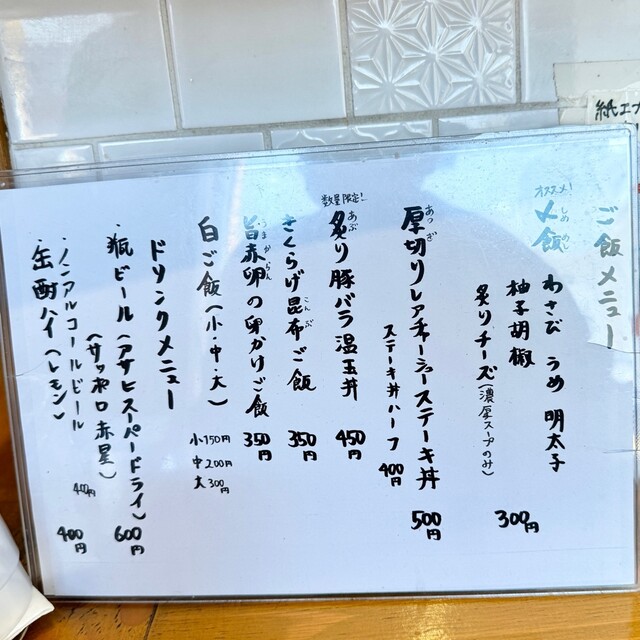 紙エプ
ご飯メニュー
オススメ!
〆飯
しめ めし
わさび うめ 明太子
柚子胡椒
炙りチーズ(濃厚スープのみ)
300円
厚切りレアチャーシューステーキ丼
あつぎ
500円
ステーキ丼ハーフ
400円
数量限定!
炙り豚バラ温玉丼
あぶ
450円
きくらげ昆布ご飯
こんぶ
350円
旨赤卵の卵かけご飯
うまからん
350円
白ご飯(小・中・大)
小150円
中200円
大300円
ドリンクメニュー
・瓶ビール(アサヒスーパードライ)
(サッポロ赤星)
600円
・ノンアルコールビール
400円
・缶酎ハイ(レモン)
400円